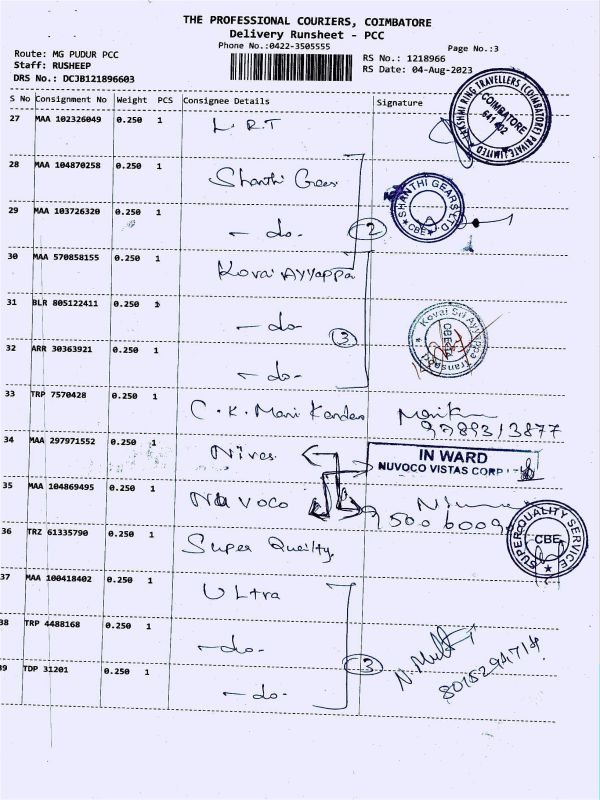 THE PROFESSIONAL COURIERS, COIMBATORE
Delivery Runsheet - PCC
Phone No.:0422-3505555
Page No.:3
Route: MG PUDUR PCC
Staff: RUSHEEP
DRS No.: DCJB121896603
RS No.: 1218966
RS Date: 04-Aug-2023
S No Consignment No Weight PCS Consignee Details Signature
27 MAA 102326049 0.250 1 L R.T
LEKSHMI RING TRAVELLERS (COIMBATORE) PRIVATE LIMITED
COIMBATORE
641 402
28 MAA 104870258 0.250 1 Shanthi Gears
SHANTHI GEARS LTD
CBE
29 MAA 103726320 0.250 1 - do - 2
30 MAA 570858155 0.250 1 Kovai Ayyappa
31 BLR 805122411 0.250 1 - do - 3
Kovai Sri Ayyappa Transport
32 ARR 30363921 0.250 1 - do -
33 TRP 7570428 0.250 1 C.K. Mani Kandan
9789313877
34 MAA 297971552 0.250 1 Nives
IN WARD
NUVOCO VISTAS CORP LTD
35 MAA 104869495 0.250 1 Nuvoco
36 TRZ 61335790 0.250 1 Super Queilty
SUPER QUALITY SERVICE
CBE
37 MAA 100418402 0.250 1 Ultra
38 TRP 4488168 0.250 1 - do -
3
39 TDP 31201 0.250 1 - do -